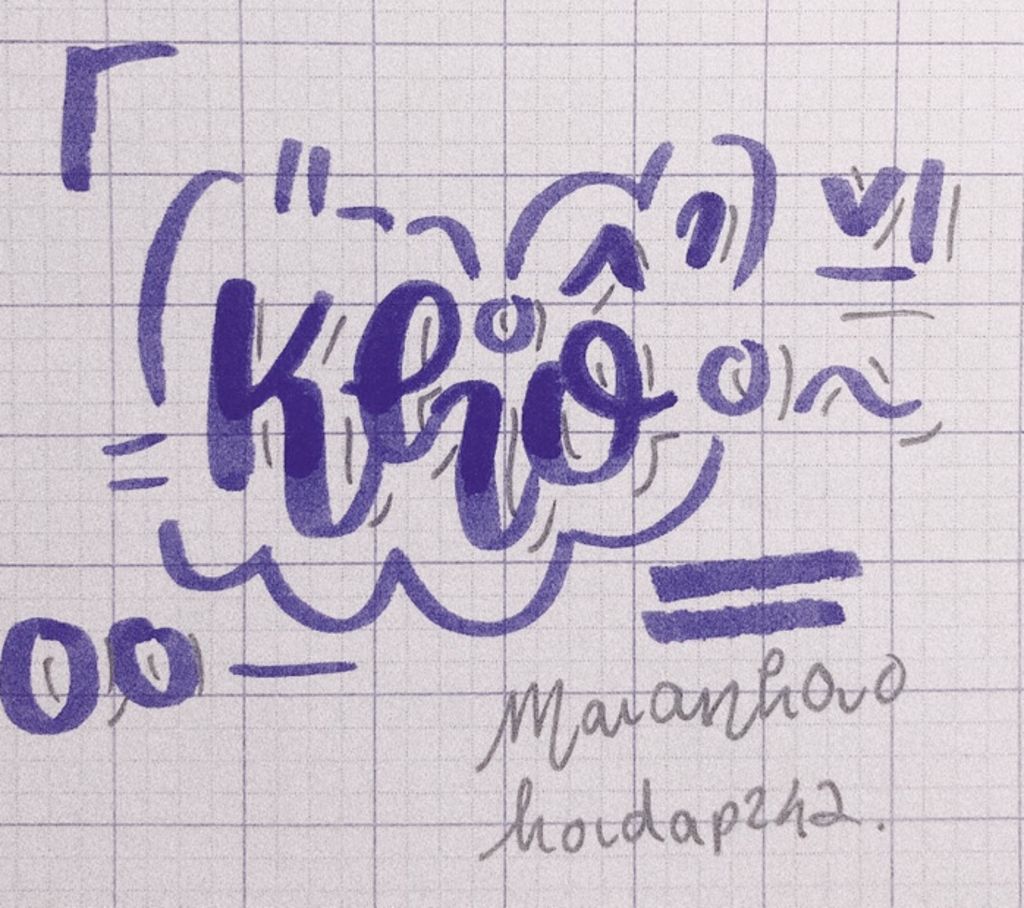 Khổ
Maianh0v0
hoidap247.